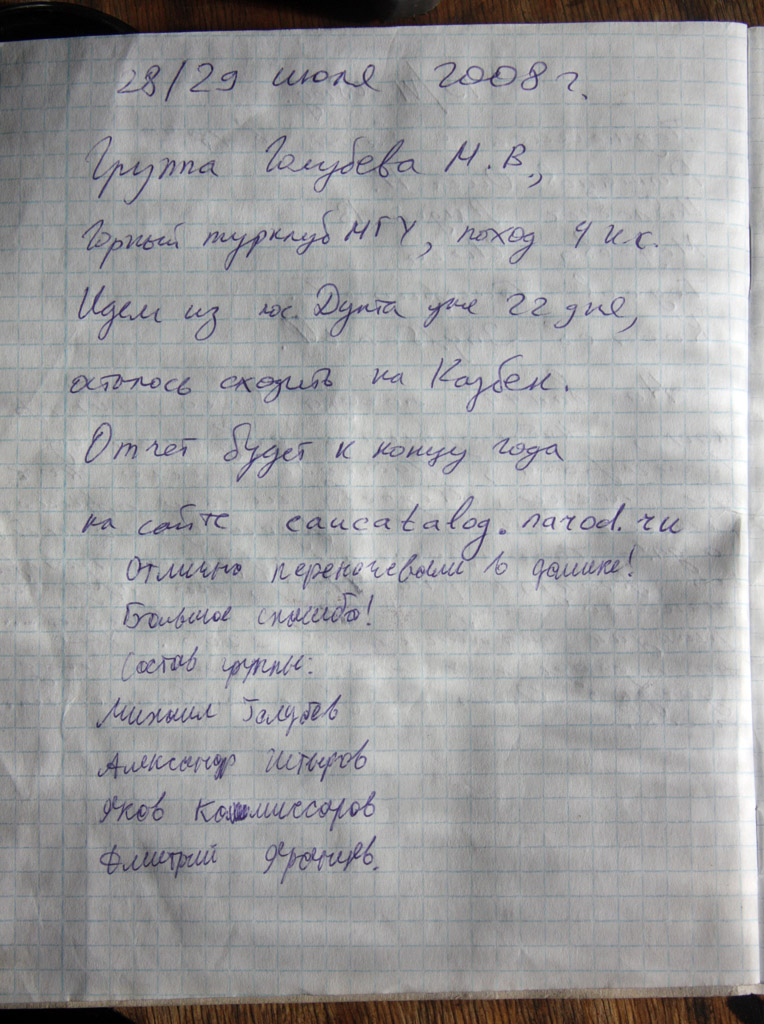 28/29 июля 2008 г.
Группа Голубева М.В.,
Горный турклуб МГУ, поход 4 к.с.
Идем из пос. Дунта уже 22 дня,
осталось сходить на Казбек.
Отчет будет к концу года
на сайте caucatalog.narod.ru
Отлично переночевали в домике!
Большое спасибо!
Состав группы:
Михаил Голубев
Александр Штыров
Яков Комиссаров
Дмитрий